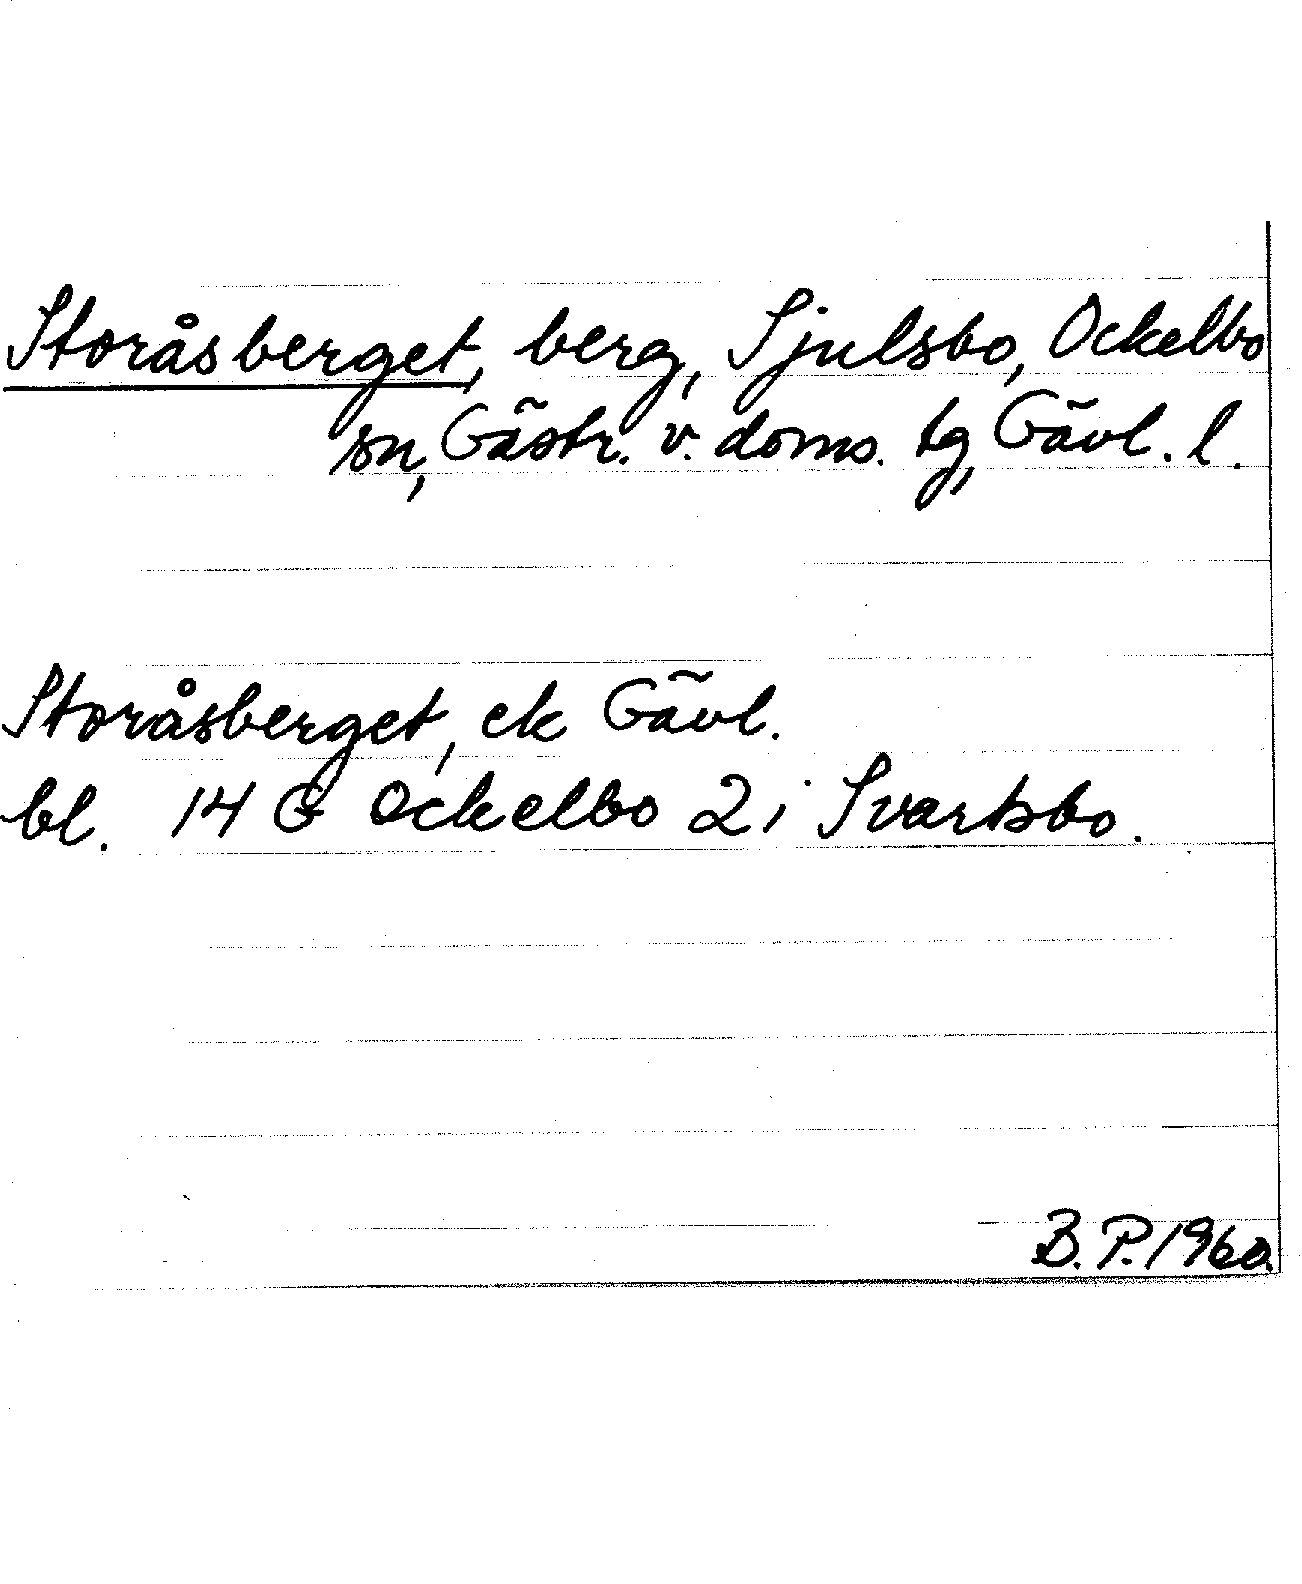 Storåsberget, berg, Sjulsbo, Ockelbo
sn, Gästr. v. doms. tg, Gävl. l.
Storåsberget, ek Gävl.
bl. 14 G Ockelbo 2 i Svartsbo.
B. P. 1960.